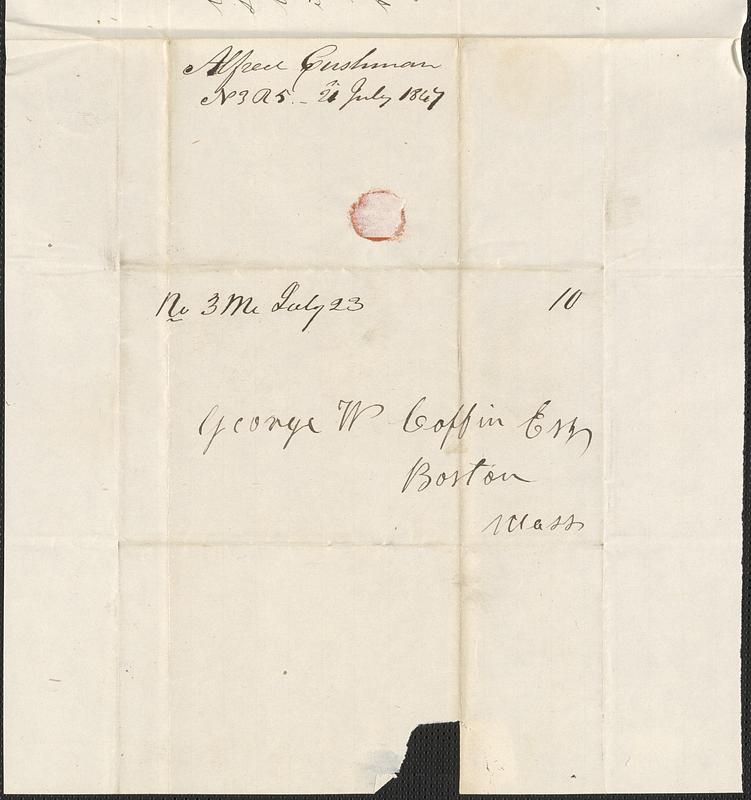 Alfred Cushman
N3 R5. - 21 July 1847
No 3 Me July 23 10
George W Coffin Esq
Boston
Mass